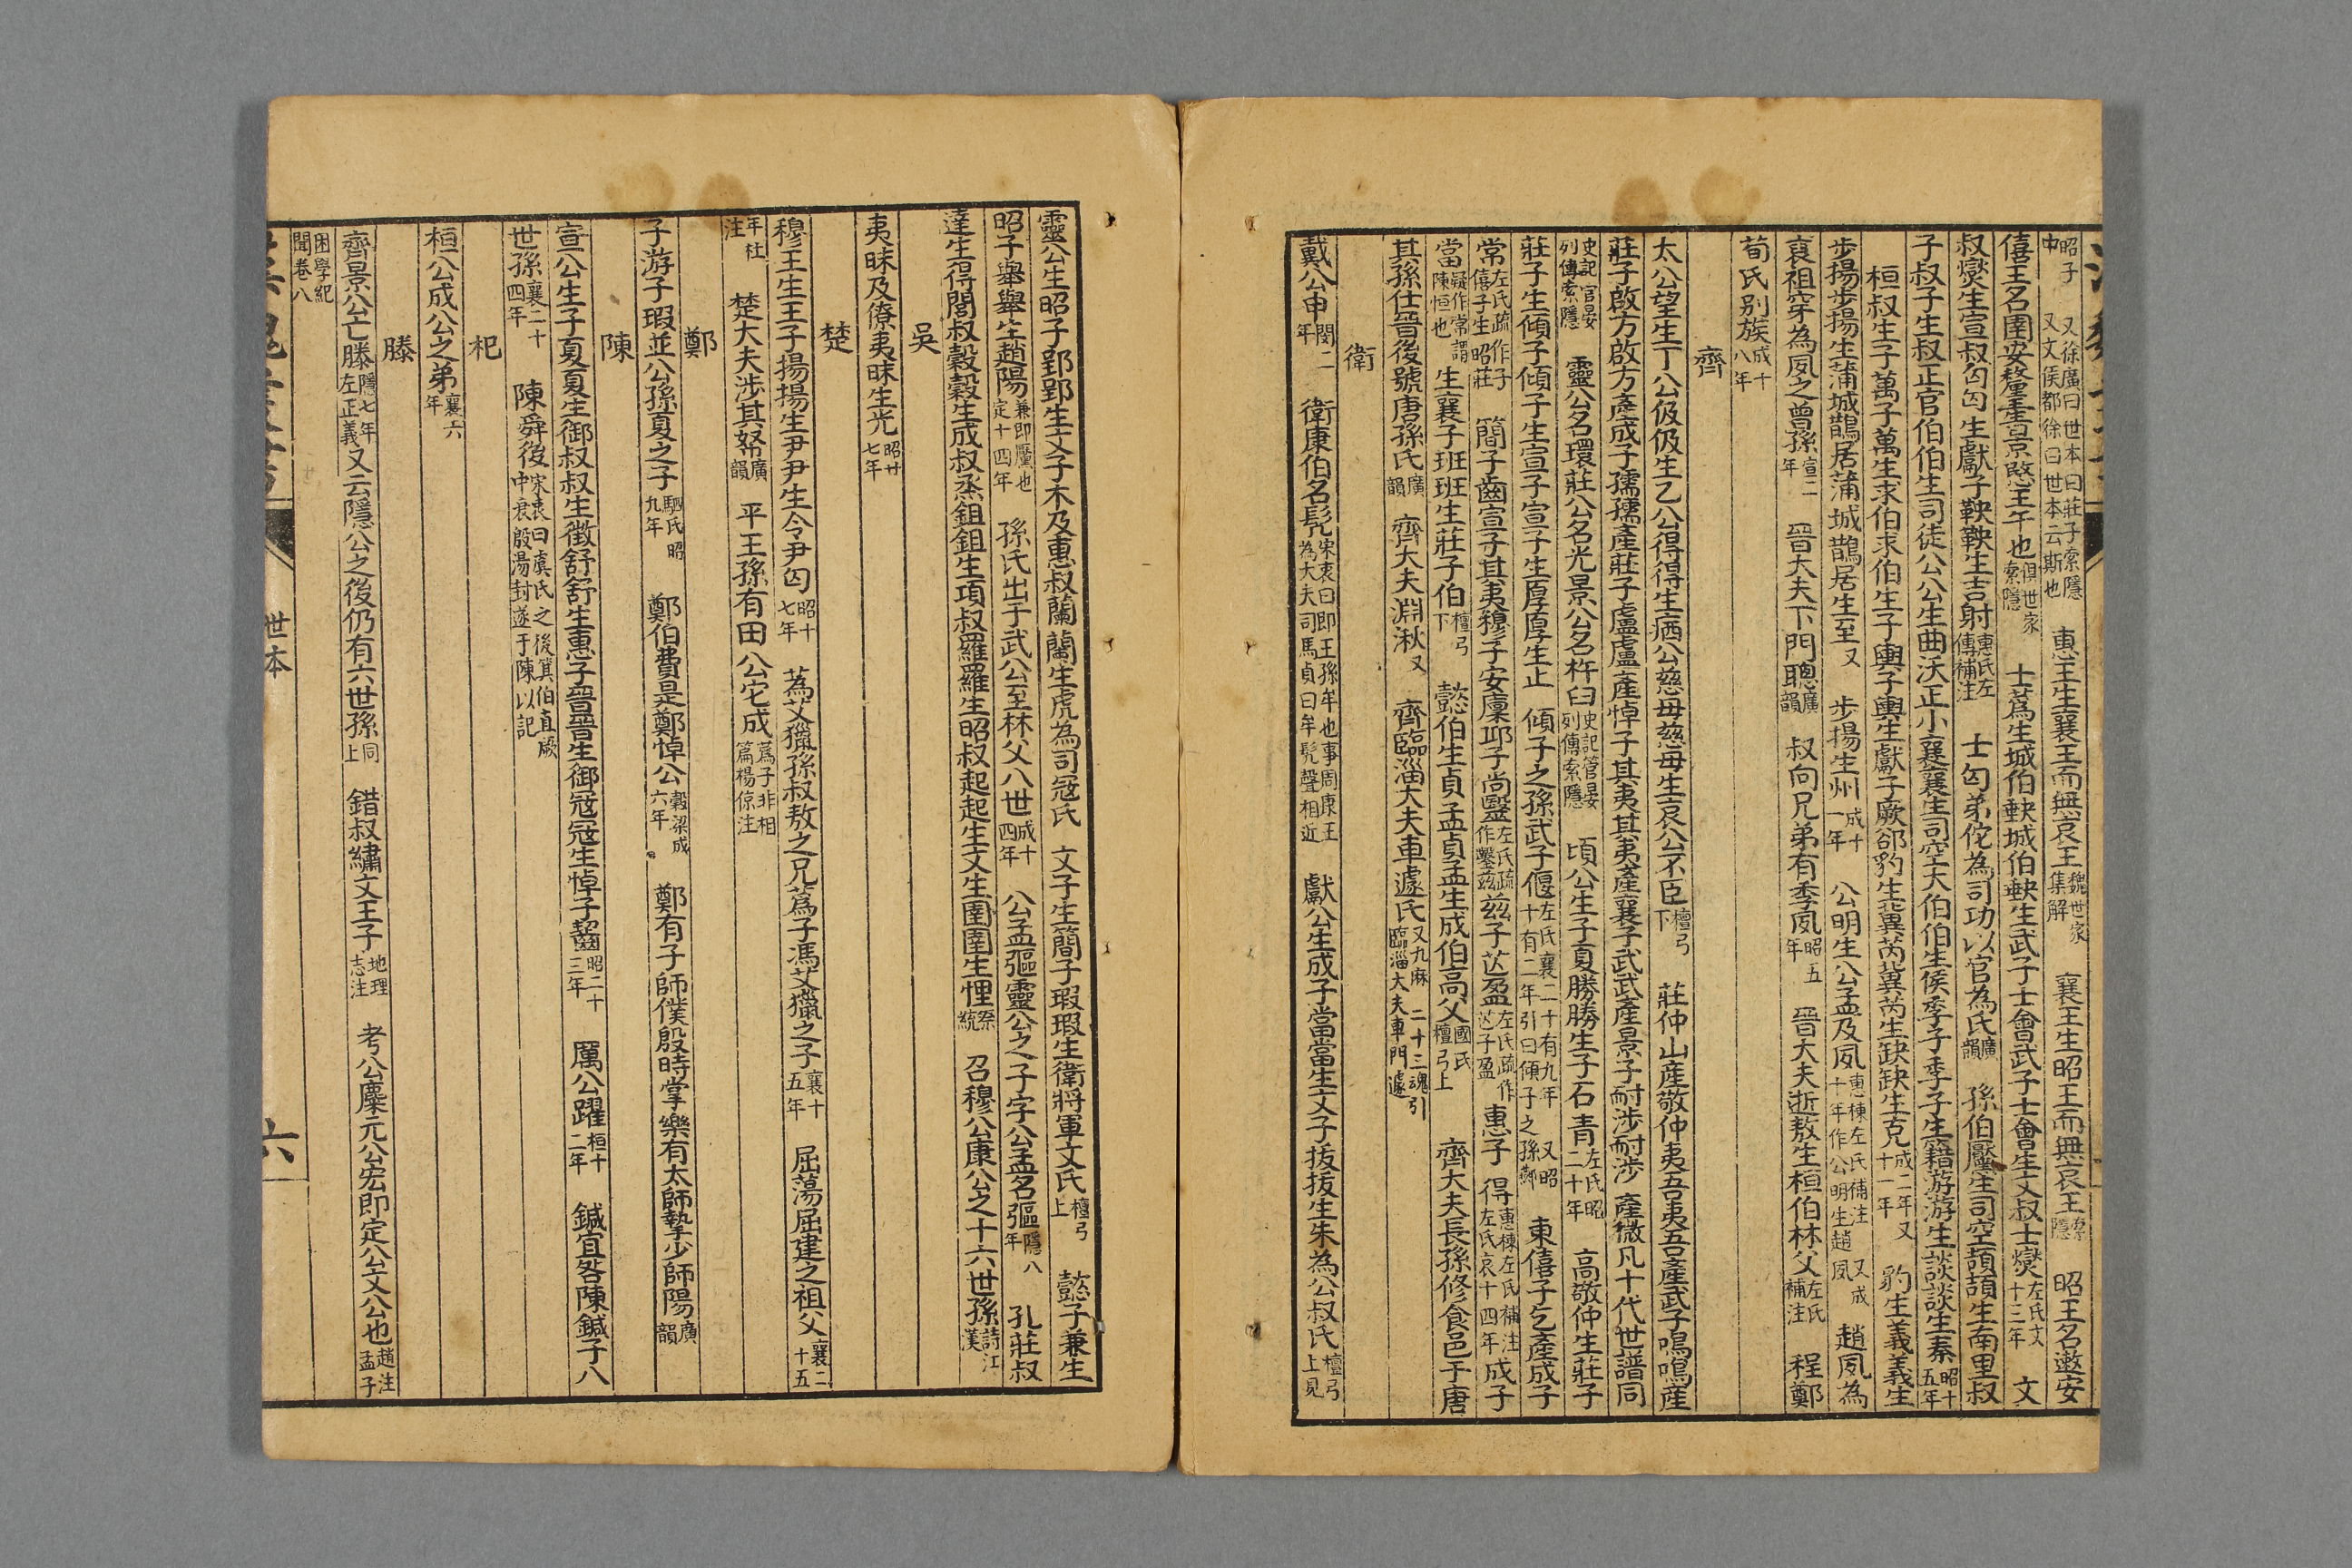 昭子 又徐廣曰世本曰莊子索隱
中 又文侯都徐曰世本云斯也 惠王生襄王而無哀王魏世家集解 襄王生昭王而無哀王索隱 昭王名遫安
僖王名圉安釐王生景愍王午也俱世家索隱 士蒍生城伯缺城伯缺生武子士會武子士會生文叔士燮左氏文十三年 文
叔燮生宣叔匄匄生獻子鞅鞅生吉射惠氏左傳補注 士匄弟佗為司功以官為氏廣韻 孫伯黶生司空頡頡生南里叔
子叔子生叔正官伯伯生司徒公公生曲沃正小襄襄生司空大伯伯生侯季子季子生籍游游生談談生秦昭十五年
桓叔生子萬子萬生求伯求伯生子輿子輿生獻子厥郤豹生冀芮冀芮生缺缺生克成二年又十一年 豹生義義生
步揚步揚生蒲城鵲居蒲城鵲居生至又 步揚生州成十一年 公明生公孟及夙惠棟左氏補注又成十年作公明生趙夙 趙夙為
衰祖穿為夙之曾孫宣二年 晉大夫下門聰廣韻 叔向兄弟有季夙昭五年 晉大夫逝敖生桓伯林父左氏補注 程鄭
荀氏別族成十八年
齊
太公望生丁公伋伋生乙公得得生癌公慈母慈母生哀公不臣檀弓下 莊仲山產敬仲夷吾夷吾產武子鳴鳴產
莊子啟方啟方產成子孺孺產莊子盧盧產悼子其夷其夷產襄子武武產景子耐涉耐涉產微凡十代世譜同
史記官晏列傳索隱 靈公名環莊公名光景公名杵臼史記管晏列傳索隱 頃公生子夏勝勝生子石青左氏昭二十年 高敬仲生莊子
莊子生傾子傾子生宣子宣子生厚厚生止 傾子之孫武子偃左氏襄二十有九年 又昭十有二年引曰傾子之孫鄭 東僖子乞產成子
常左氏疏作子僖子生昭莊 簡子齒宣子其夷穆子安廩邱子尚毉左氏疏作鑿茲茲子芒盈左氏疏作芒子盈 惠子得惠棟左氏補注左氏哀十四年 成子
當疑作常謂陳恒也 生襄子班班生莊子伯檀弓下 懿伯生貞孟貞孟生成伯高父國氏檀弓上 齊大夫長孫修食邑于唐
其孫仕晉後號唐孫氏廣韻 齊大夫淵湫又 齊臨淄大夫車遽氏又九麻二十三魂引臨淄大夫車門遽
衛
戴公申閔二年 衛康伯名髡宋衷曰即王孫牟也事周康王為大夫司馬貞曰牟髡聲相近 獻公生成子當當生文子拔拔生朱為公叔氏檀弓上見
靈公生昭子郢郢生文子木及惠叔蘭蘭生虎為司寇氏 文子生簡子瑕瑕生衛將軍文氏檀弓上 懿子兼生
昭子舉舉生趙陽兼即黶也定十四年 孫氏出于武公至林父八世成十四年 公孟彄靈公之子字公孟名彄隱八年 孔莊叔
達生得閭叔穀穀生成叔烝鉏鉏生項叔羅羅生昭叔起起生文生圉圉生悝祭統 召穆公康公之十六世孫詩江漢
吳
夷昧及僚夷昧生光昭廿七年
楚
穆王生王子揚揚生尹尹生令尹匄昭十七年 蒍艾獵孫叔敖之兄蒍子馮艾獵之子襄十五年 屈蕩屈建之祖父襄二十五
年杜注 楚大夫涉其帑廣韻 平王孫有田公它成蒍子非相篇楊倞注
鄭
子游子瑕並公孫夏之子駟氏昭九年 鄭伯費是鄭悼公穀梁成六年 鄭有子師僕殷時掌樂有太師摯少師陽廣韻
陳
宣公生子夏夏生御叔叔生徵舒舒生惠子晉晉生御寇寇生悼子齧昭二十三年 厲公躍桓十二年 鍼宜咎陳鍼子八
世孫襄二十四年 陳舜後宋衷曰虞氏之後箕伯直厥中衰殷湯封遂于陳以記
杞
桓公成公之弟襄六年
滕
齊景公亡滕隱七年左正義又云隱公之後仍有六世孫同上 錯叔繡文王子地理志注 考公麋元公宏即定公文公也趙注孟子
困學紀聞卷八
世本
六